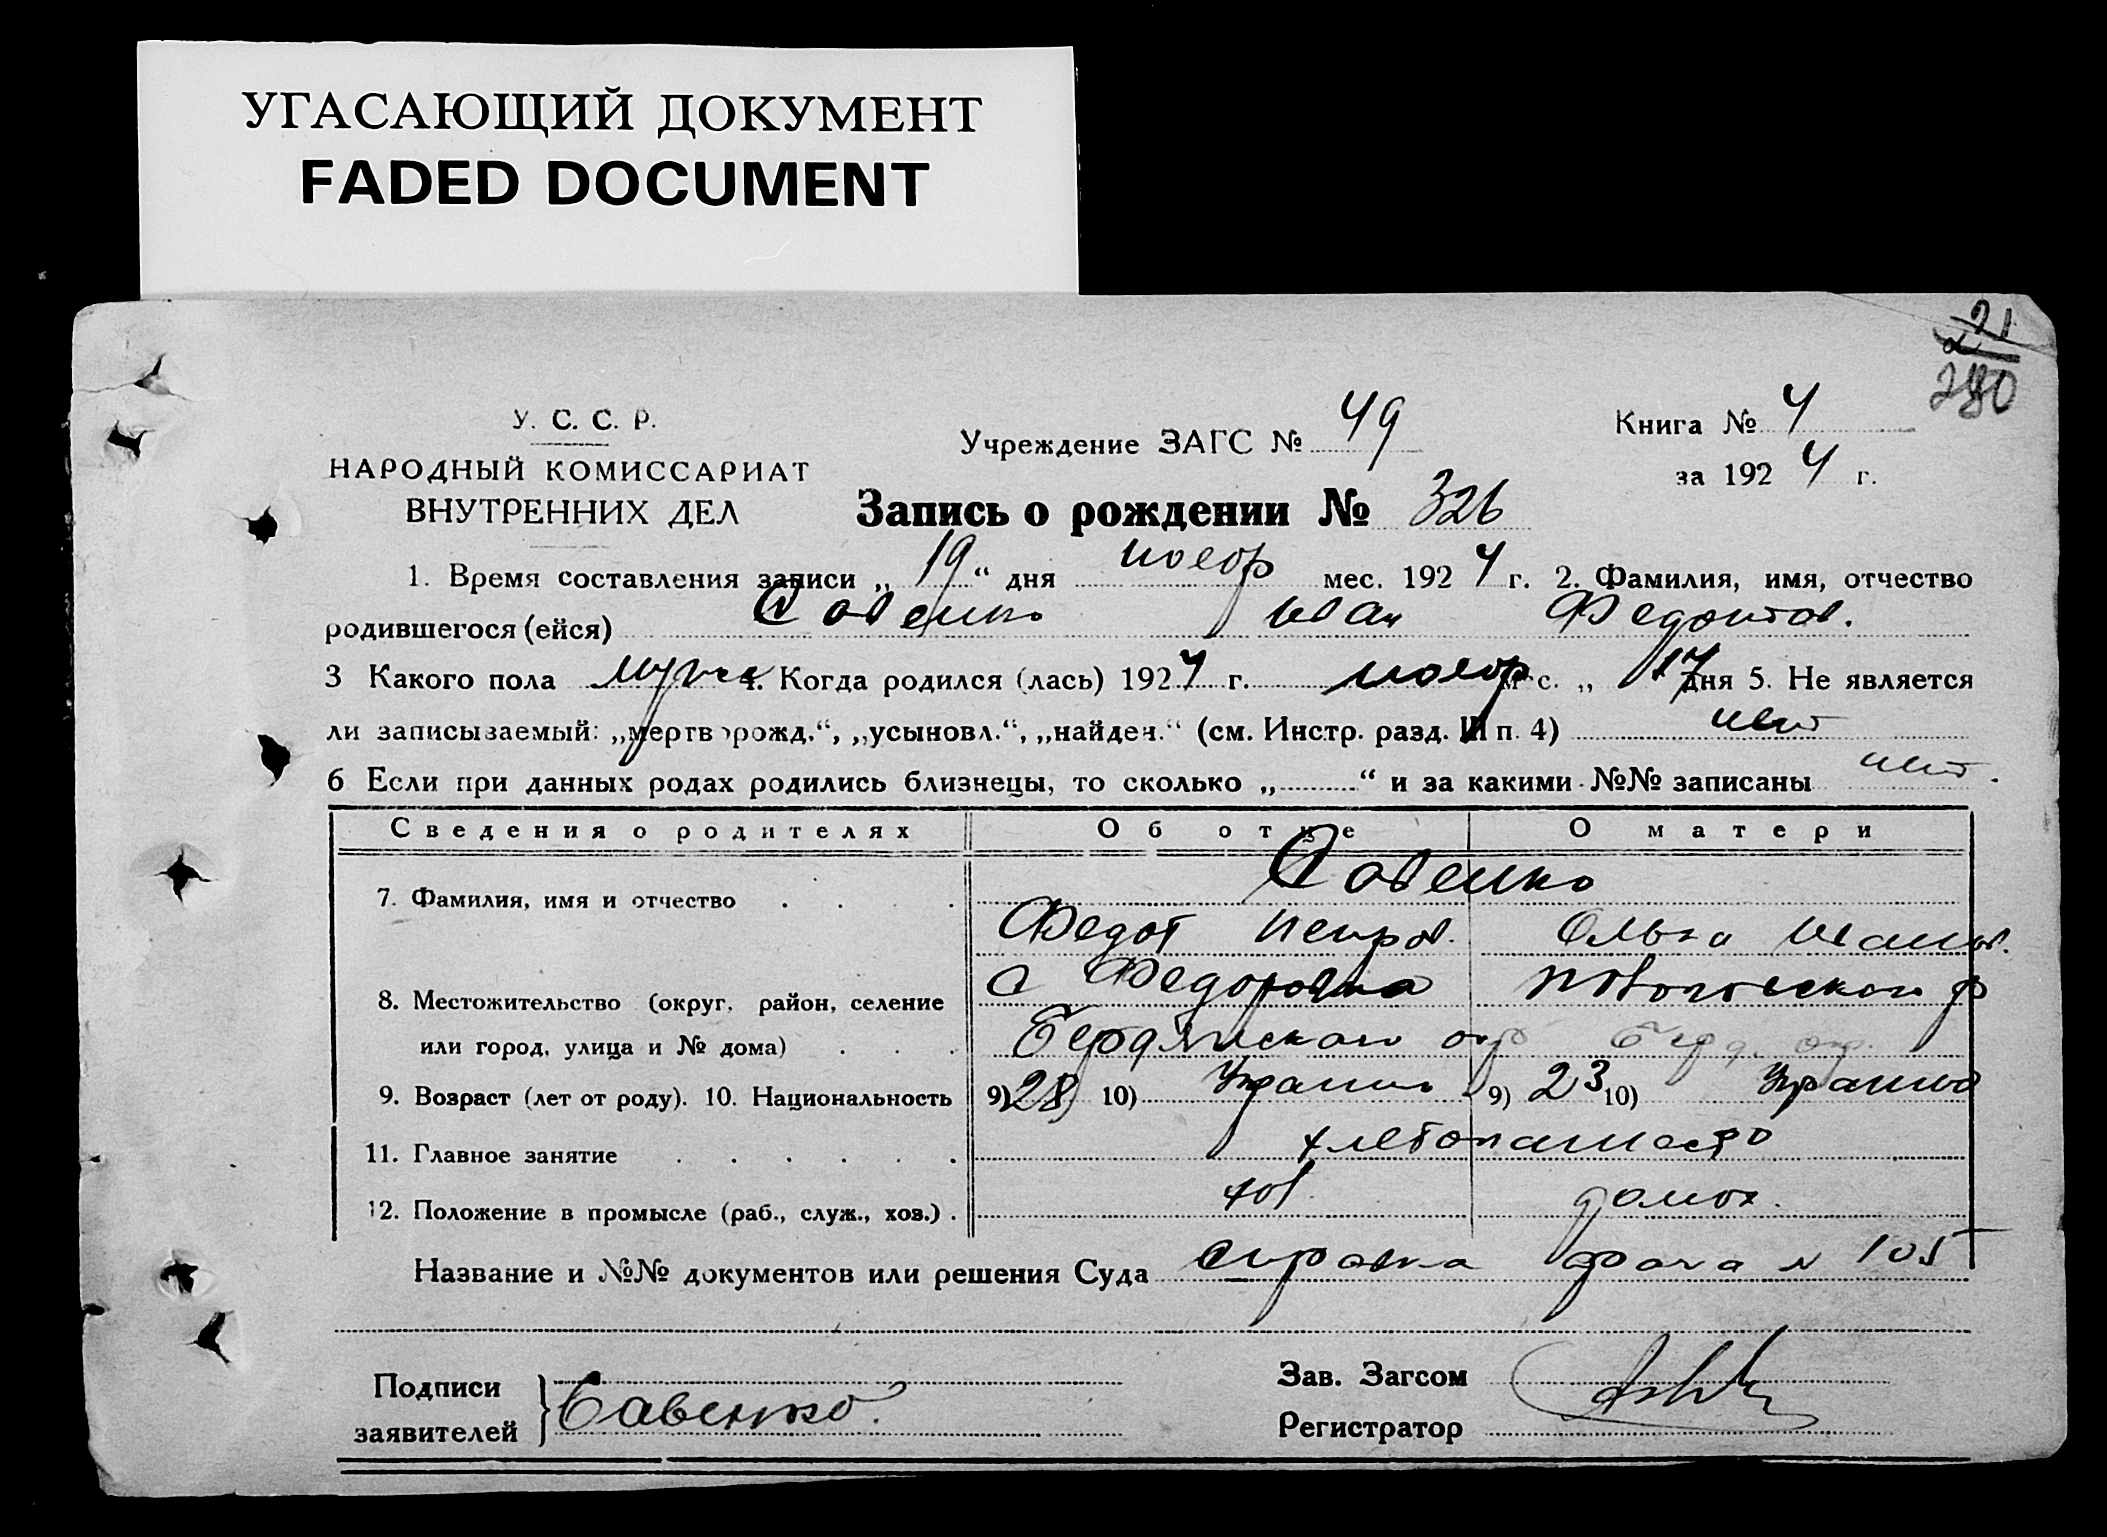 УГАСАЮЩИЙ ДОКУМЕНТ
FADED DOCUMENT
21
280
У. С. С. Р.
НАРОДНЫЙ КОМИССАРИАТ
ВНУТРЕННИХ ДЕЛ
Учреждение ЗАГС № 49
Книга № 4
за 1924 г.
Запись о рождении № 326
1. Время составления записи „19“ дня ноябр мес. 1924 г. 2. Фамилия, имя, отчество
родившегося (ейся) Савенко Иван Федотов.
3 Какого пола мужск 4. Когда родился (лась) 1924 г. ноябр м-с. „17 дня 5. Не является
ли записываемый: „мертворожд.“, „усыновл.“, „найден.“ (см. Инстр. разд. III п. 4) нет
6 Если при данных родах родились близнецы, то сколько „ “ и за какими №№ записаны нет.
Сведения о родителях Об отце О матери
7. Фамилия, имя и отчество Савенко
Федот Петров. Ольга
8. Местожительство (округ, район, селение с Федоровка
или город, улица и № дома) Бердянского окр Берд. окр.
9. Возраст (лет от роду). 10. Национальность 9) 28 10) Украин 9) 23 10)
11. Главное занятие хлебопашество
12. Положение в промысле (раб., служ., хоз.) хоз домох.
Название и №№ документов или решения Суда справка врача № 105
Подписи
заявителей } Савенко.
Зав. Загсом
Регистратор